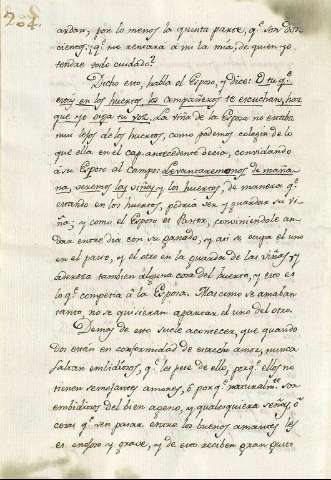 204.
ardan, por lo menos la quinta parte, q̃. son dos
cientos; q̃. me rentara à mi la mia, de quien yo
tendre todo cuidado?
Dicho esto, habla el Esposo, y dice: O tu q̃.
estàs en los huertos, los compañeros te escuchan, haz
que yo oiga tu voz. La viña de la Esposa no estaba
mui lejos de los huertos, como podemos colegir de lo
que ella en el cap. antecedente decia, convidando
à su Esposo al campo: Levantaremonos de maña-
na, veremos las viñas, y los huertos, de manera q̃.
estando en los huertos, podria ver y guardar su vi-
ña; y como el Esposo es Pastor, conviniendole an-
dar entre dia con su ganado, y asi se ocupa el uno
en el pasto, y el otro en la guarda de las viñas, y
adereza tambien alguna cosa del huerto, y eso es
lo q̃. competia à la Esposa. Mas como se amaban
tanto, no se quisieran apartar el uno del otro.
Demas de esto suele acontecer, que quando
dos estan en conformidad de estrecho amor, nunca
faltan embidiosos, q̃. les pese de ello, porq̃. ellos no
tienen semejantes amores, ò porq̃. naturalm.te son
embidiosos del bien ageno, y qualesquiera señas, ò
cosas q̃. ven pasar entre los buenos amantes les
es enojoso y grave, y de esto reciben gran gusto